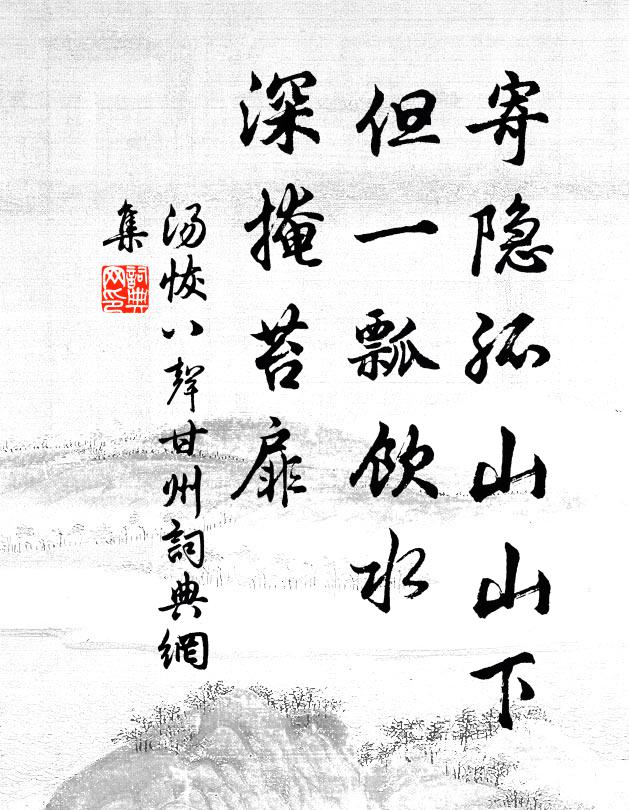 寄隐孤山山下
但一瓢饮水
深掩苔扉
汤恢八聲甘州詞典網
集
詞典网印